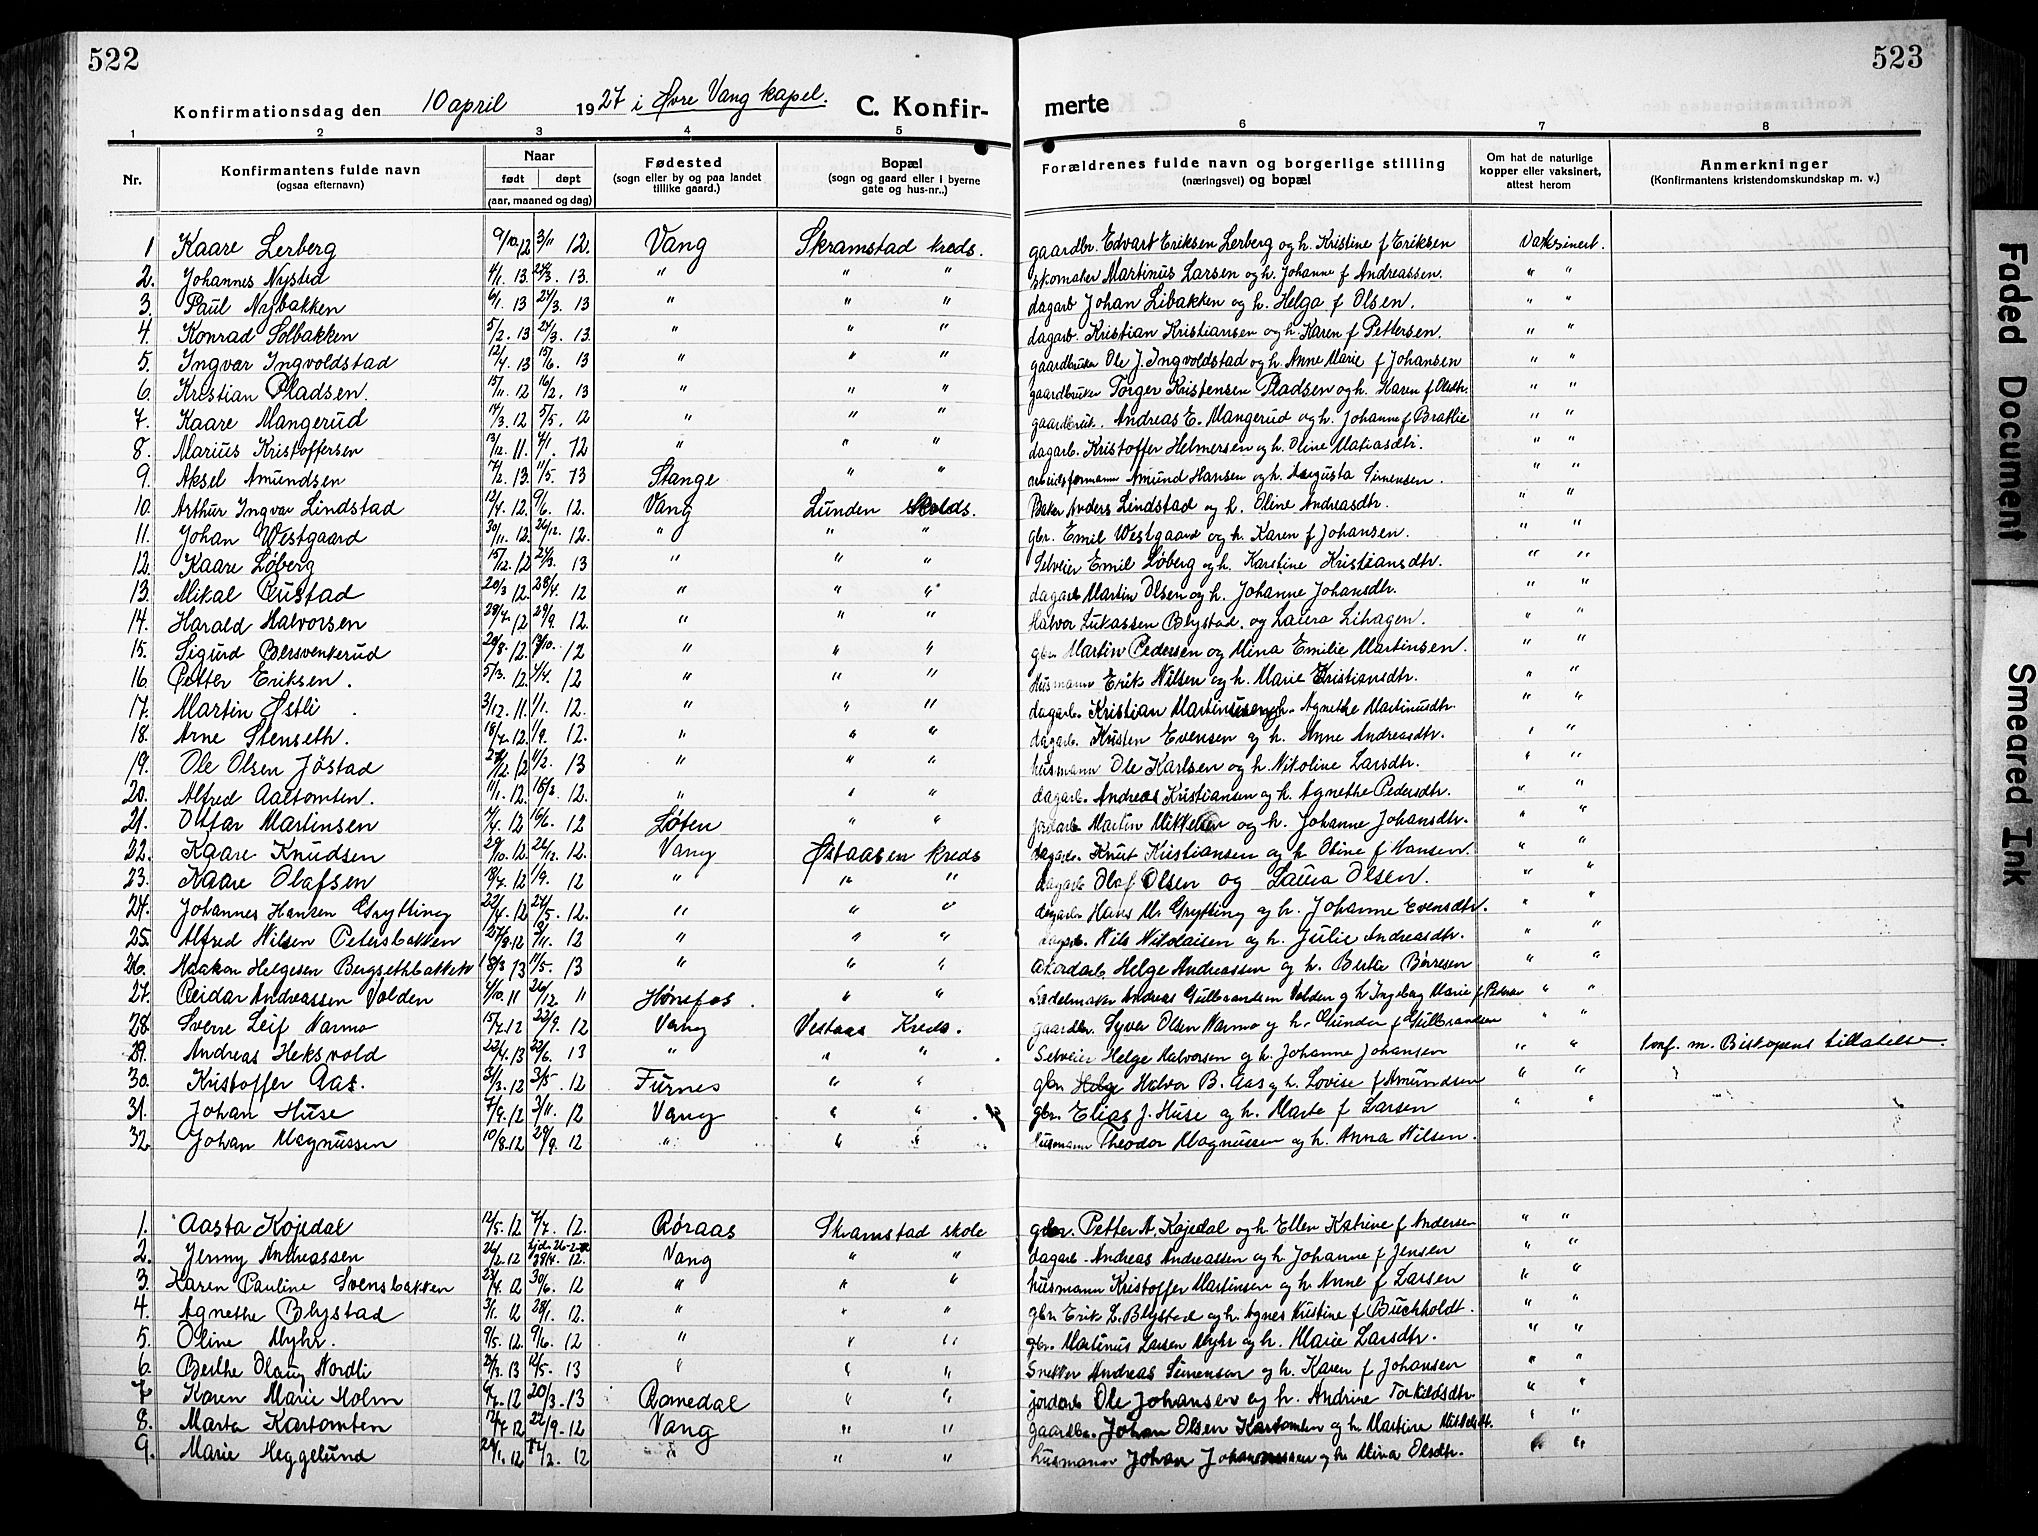 522
523
Konfirmationsdag den 10 april 1927 i Øvre Vang kapel. C. Konfir- merte
1 2 3 4 5 6 7 8
Nr. Konfirmantens fulde navn (ogsaa efternavn) Naar født døpt (aar, maaned og dag) Fødested (sogn eller by og paa landet tillike gaard.) Bopæl (sogn og gaard eller i byerne gate og hus-nr..) Forældrenes fulde navn og borgerlige stilling (næringsvei) og bopæl Om hat de naturlige kopper eller vaksinert, attest herom Anmerkninger (Konfirmantens kristendomskundskap m. v.)
1 Kaare Lerberg 9/10 12 3/11 12. Vang Skramstad kreds. gaardbr. Edvart Eriksen Lerberg og h. Kristine f Eriksen Vaksinert.
2. Johannes Nystad 4/1. 13 24/3. 13. " " " skomaker Martinus Larsen og h. Johanne f Andreassen. " "
3. Paul Nybakken 6/1. 13 24/3. 13 " " " dagarb Johan Libakken og h. Helga f Olsen. " "
4. Konrad Solbakken 5/2. 13 24/3. 13. " " " dagarb. Kristian Kristiansen og h. Karen f Pettersen. " "
5. Ingvar Ingvoldstad 12/4. 13 15/6. 13 " " " gaardbruker Ole J. Ingvoldstad og h. Anne Marie f Johansen " "
6. Kristian Pladsen. 15/11. 12 16/2. 13 " " " gaardbruker Torger Kristensen Pladsen og h. Karen f Olsdtr. " "
7. Kaare Mangerud 14/3. 12 5/5. 12 " " " gaardbruk. Andreas E. Mangerud og h. Johanne f Bratlie " "
8. Marius Kristoffersen 13/12. 11. 4/1. 12 " " " dagarb. Kristoffer Helmersen og h. Oline Matiasdtr. " "
9. Aksel Amundsen 7/2. 13. 11/5. 13 Stange " " arbeidsformann Amund Hansen og h. Augusta Simensen. " "
10. Arthur Ingvar Lindstad 12/4. 12. 9/6. 12. Vang Lunden Skolds. Baker Anders Lindstad og h. Oline Andreasdtr. " "
11. Johan Westgaard 30/11. 12. 26/12. 12. " " " gbr. Emil Westgaard og h. Karen f Johansen. " "
12. Kaare Løberg 15/12. 12 24/3. 13 " " " Selveier Emil Løberg og h. Karstine Kristiansdtr. " "
13. Mikal Rustad 20/3 12. 28/4. 12 " " " dagarb Martin Olsen og h. Johanne Johansdtr. " "
14. Harald Halvorsen 28/7. 12 29/9. 12. " " " Halvor Lukassen Blystad. og Laura Lihagen. " "
15. Sigurd Bersvenkerud 20/8. 12. 13/10. 12 " " " gbr Martin Pedersen og Mina Emilie Martinsen. " "
16. Petter Eriksen. 5/3. 12. 4/4. 12 " " " Husmann Erik Nilsen og h. Marie Kristiansdtr. " "
17. Martin Østli 3/12. 11. 1/1. 12. " " " dagarb. Kristian Martinusen og h. Agnethe Martinusdtr. " "
18. Arne Stenseth. 18/7. 12. 1/9. 12. " " " dagarb. Kristen Evensen og h. Anne Andreasdtr. " "
19. Ole Olsen Jøstad 12. 12 2. 13 " " " husmann Ole Karlsen og h. Nikoline Larsdtr. " "
20. Alfred Aaltomten. 11/1. 12. 18/3. 12. " " " dagarb. Andreas Kristiansen og h. Agnethe Pedersdtr. " "
21. Ottar Martinsen 4. 12 16/6. 12 Løten " " jordarb Martin Mikkelsen og h. Johanne Johansdtr. " "
22. Kaare Knudsen 29/10. 12. 26/12. 12. Vang Østaasen kreds dagarb. Knut Kristiansen og h Oline f Hansen. " "
23. Kaare Olafsen 18/7. 12 1/9. 12 " " " dagarb Olaf Olsen og Laura Olsen. " "
24. Johannes Hansen Grytting 22/4. 12 24/5. 12. " " " dagarb. Hans M. Grytting og h. Johanne Evensdtr. " "
25. Alfred Nilsen Petersbakken 27/9. 12 3/11. 12 " " " dagarb. Nils Nikolaisen og h. Julie Andreasdtr. " "
26. Haakon Helgesen Bergsethbakken 18/3 13 11/5. 13 " " " akordarb Helge Andreassen og h. Berte Børresen " "
27. Reidar Andreassen Volden 4/10. 11 26/12. 11 Hønefos. " " Sadelmaker Andreas Gulbrandsen Volden og h Ingeborg Marie f Peders " "
28. Sverre Leif Narmo 15/7. 12 22/9. 12 Vang Vestaas Kreds. gaardbr. Syver Olsen Narmo og h. Gunda f Gulbrandsen " "
29. Andreas Heksvold 22/4. 13 22/6. 13 " " " Selveier Helge Halvorsen og h. Johanne Johansen " " Konf. m. Biskopens tillatelse.
30. Kristoffer Aas. 31/3. 12 3/5. 12 Furnes " " gbr. Helge Halvor B. Aas og h. Lovise f Amundsen " "
31. Johan Huse 7/9. 12 3/11. 12 Vang " " gbr. Elias J. Huse og h. Marte f Larsen " "
32. Johan Magnussen 10/8. 12 29/9. 12 " " " Husmann Theodor Magnussen og h. Anna Nilsen.
1. Aasta Kojedal 12/5. 12 7/7. 12. Røraas Skramstad skole gbr. Petter A. Kojedal og h Ellen Katrine f Andersen " "
2. Jenny Andreassen 26/2. 12 28/4. 12. Vang " " dagarb. Andreas Andreassen og h. Johanne f Jensen " "
3. Karen Pauline Svensbakken 23/4. 12 30/6. 12 " " " husmann Kristoffer Martinsen og h. Anne f Larsen " "
4. Agnethe Blystad 3/1. 12 28/1. 12. " " " gbr. Erik L. Blystad og h. Agnes Kristine f Buchholdt. " "
5. Oline Myhr. 9/5. 12. 9/6. 12 " " " gbr. Martinus Larsen Myhr og h. Marie Larsdtr. " "
6. Berthe Olaug Nordli 3. 13 12/5. 13 " " " Snekker Andreas Simensen og h. Karen f Johansen " "
7 Karen Marie Holm 7. 12 20/3. 13 Romedal " " jordarb Ole Johansen og h. Andrine Torkildsdtr. " "
8. Marta Kartomten 12/7 12 22/9. 12 Vang " " gaardbr. Johan Olsen Kartomten og h Martine Mikkelsdtr. " "
9. Marie Heggelund 1. 12 2. 12 " " " husmann Johan Johannessen og h Mina Olsdtr. " "
Faded Document
Smeared Ink